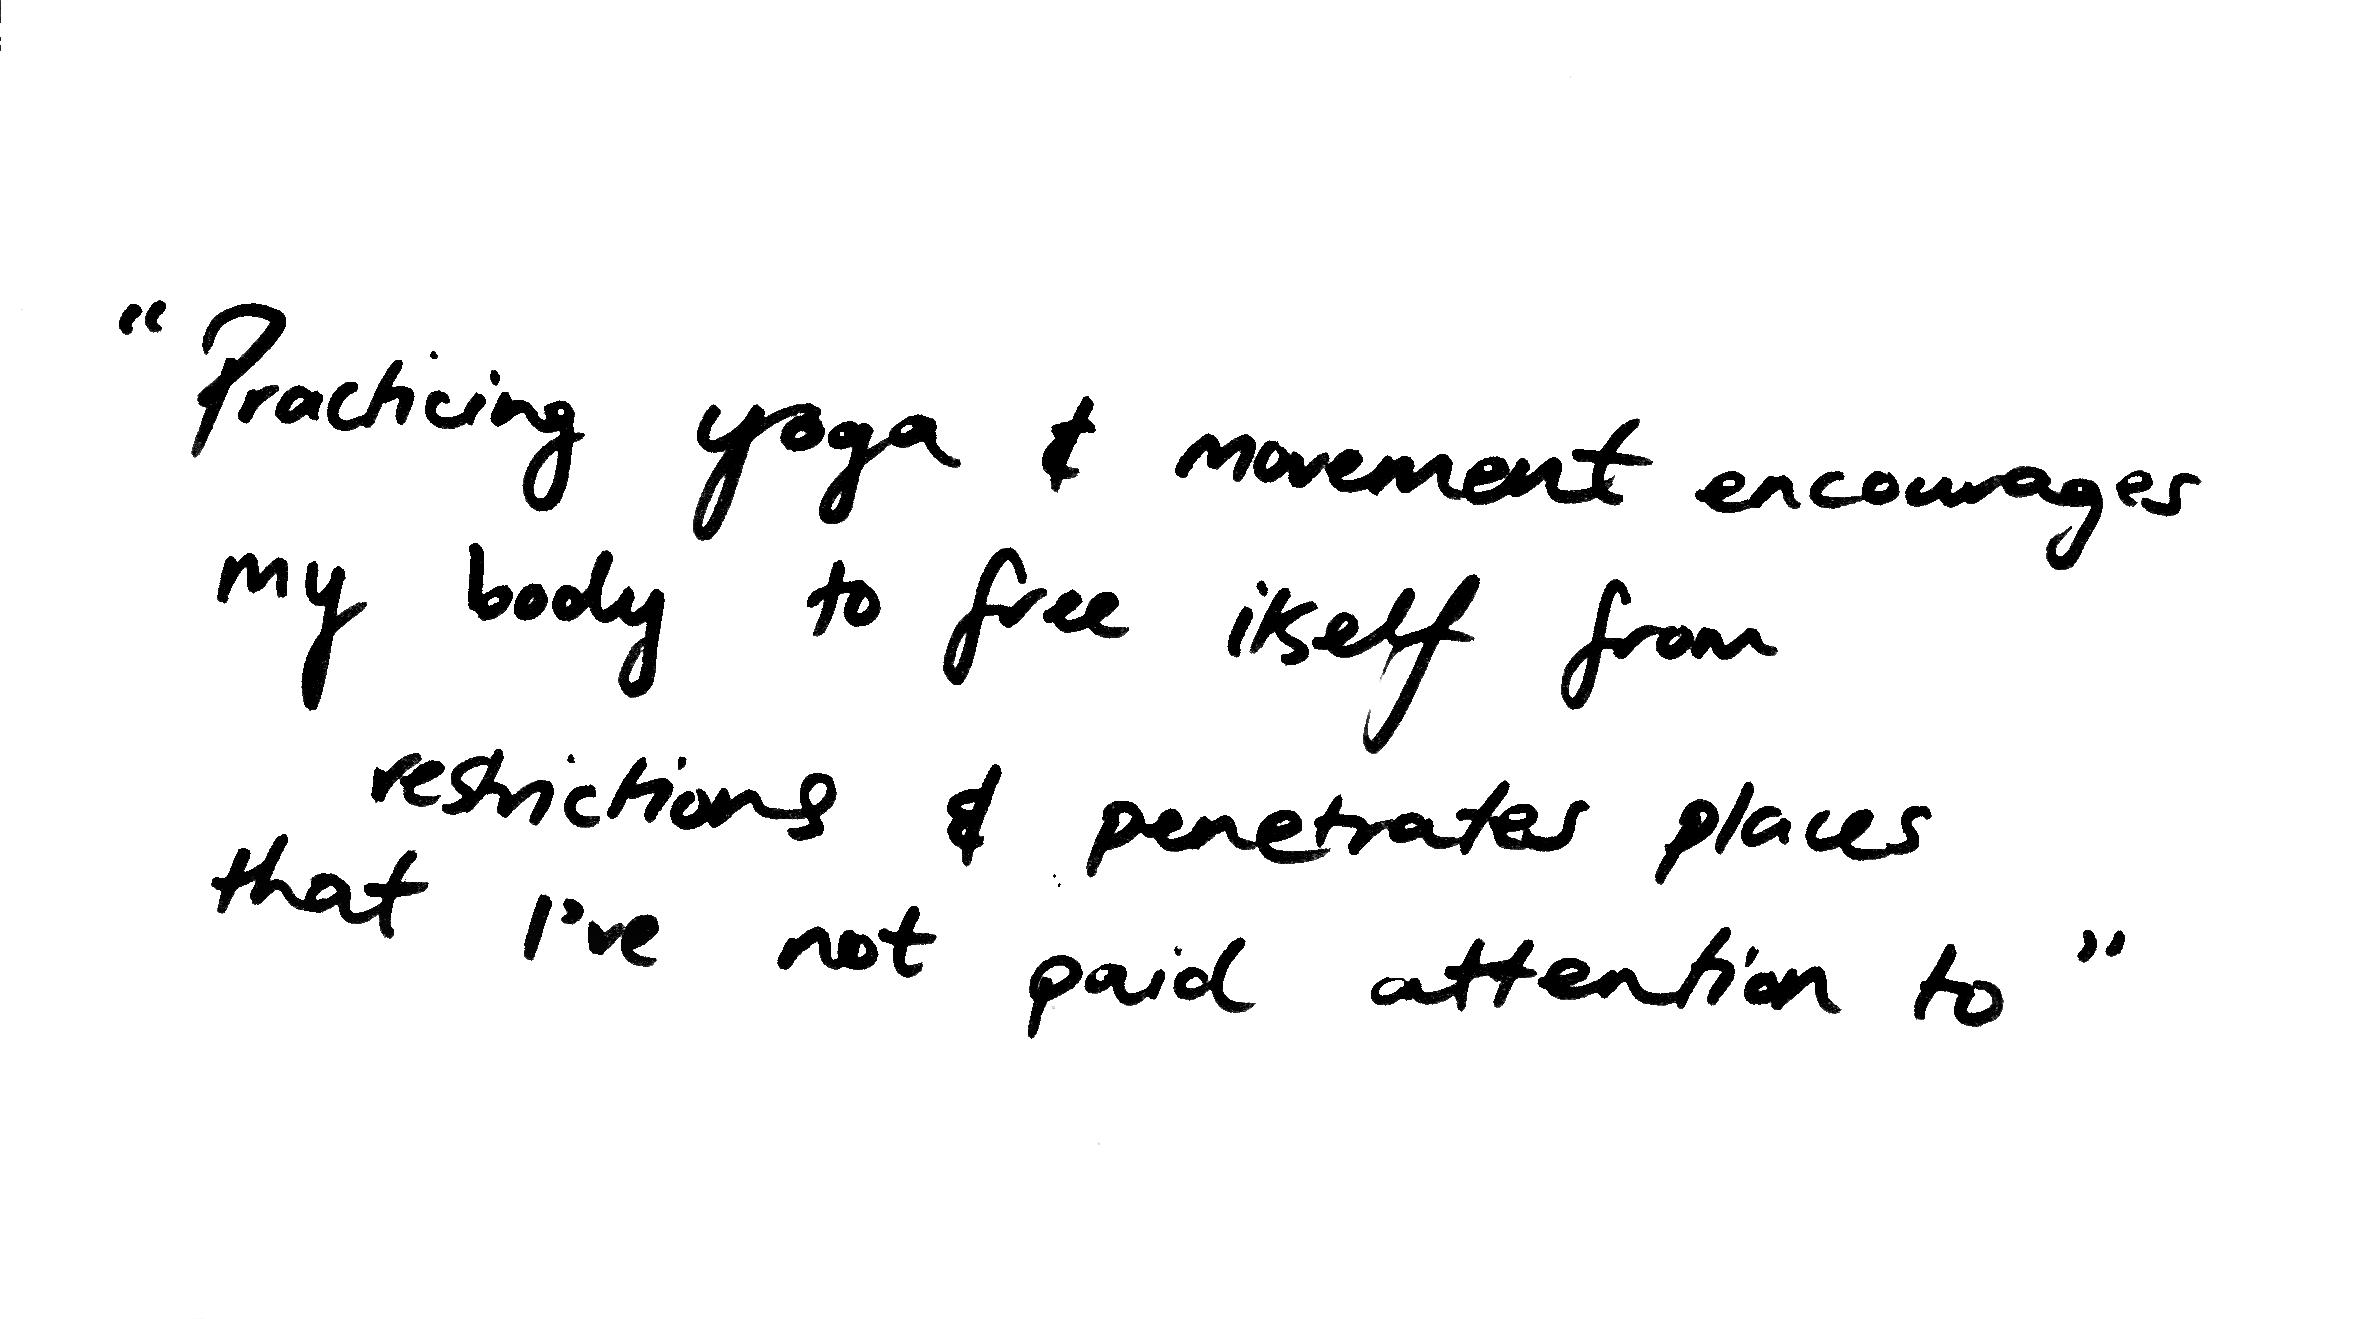 “Practicing yoga & movement encourages
my body to free itself from
restrictions & penetrates places
that I've not paid attention to”